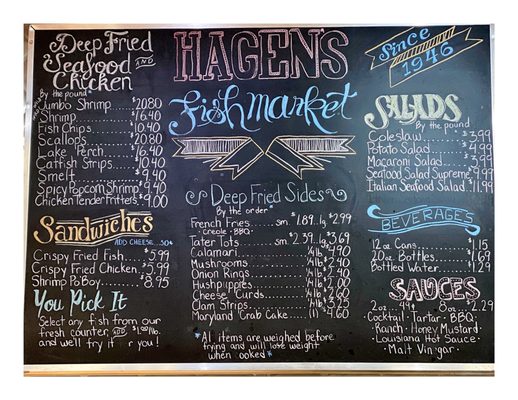 Deep Fried
Seafood AND
Chicken
By the pound
Jumbo Shrimp $20.80
Shrimp $16.40
Fish Chips 10.40
Scallops $20.80
Lake Perch $16.40
Catfish Strips $10.40
Smelt $9.40
Spicy Popcorn Shrimp $9.40
Chicken Tender Fritters $9.00
Sandwiches
ADD CHEESE .50¢
Crispy Fried Fish $5.99
Crispy Fried Chicken $5.99
Shrimp Po Boy $8.95
You Pick It
Select any fish from our
fresh counter, AND
and we'll fry it for you!
HAGEN'S
Fish Market
Deep Fried Sides
By the order
French Fries sm. $1.89 lg. $2.99
Creole · BBQ
Tater Tots sm. $2.39 lg. $3.69
Calamari
Mushrooms
Onion Rings
Hushpuppies
Cheese Curds
Clam Strips
Maryland Crab Cake (1) $4.60
*All items are weighed before
frying and will lose weight
when cooked*
Since
1946
SALADS
By the pound
Coleslaw
Potato Salad
Macaroni Salad
Seafood Salad Supreme $9.99
Italian Seafood Salad $11.99
BEVERAGES
12 oz. Cans $1.15
20 oz. Bottles $1.69
Bottled Water $1.29
SAUCES
2 oz. 8 oz. $2.29
Cocktail · Tartar · BBQ ·
Ranch · Honey Mustard ·
Louisiana Hot Sauce ·
Malt Vin gar ·